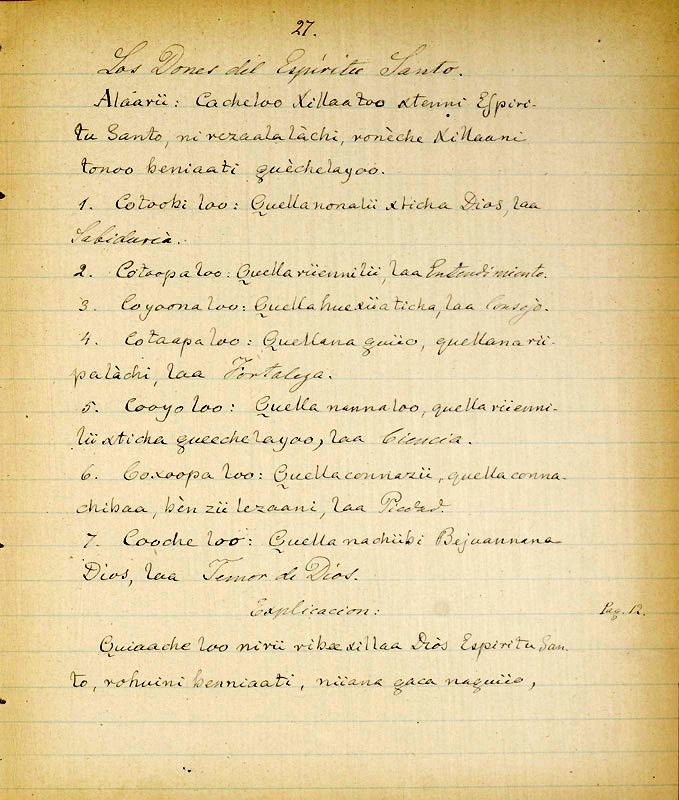 27.
Los Dones del Espíritu Santo.
Aláarii: Cacheloo Xillaatoo xtenni Espiri-
tu Santo, ni rezaalalàchi, ronèche Xillaani
tonoo beniaati guèchelayoo.
1. Cotoobi loo: Quellanonalii xticha Dios, laa
Sabiduria.
2. Cotoopa loo: Quella riiennilii, laa Entendimiento.
3 Coyoona loo: Quella huexiiaticha, laa Consejo.
4. Cotaapa loo: Quellana guiio, quellana rii-
palàchi, laa Fortaleza.
5. Cooyo loo: Quella nannaloo, quella riienni-
lii xticha queechelayoo, laa Ciencia.
6. Coxoopa loo: Quella connazii, quella conna-
chibaa, bèn zii lezaani, laa Piedad.
7. Cooche loo: Quella nachiibi Bejuannana
Dios, laa Temor de Dios.
Explicacion: Pag. 12.
Quiaache loo nirii ribaexillaa Diòs Espiritu San-
to, rohuini benniaati, niiana gaca naguiio,